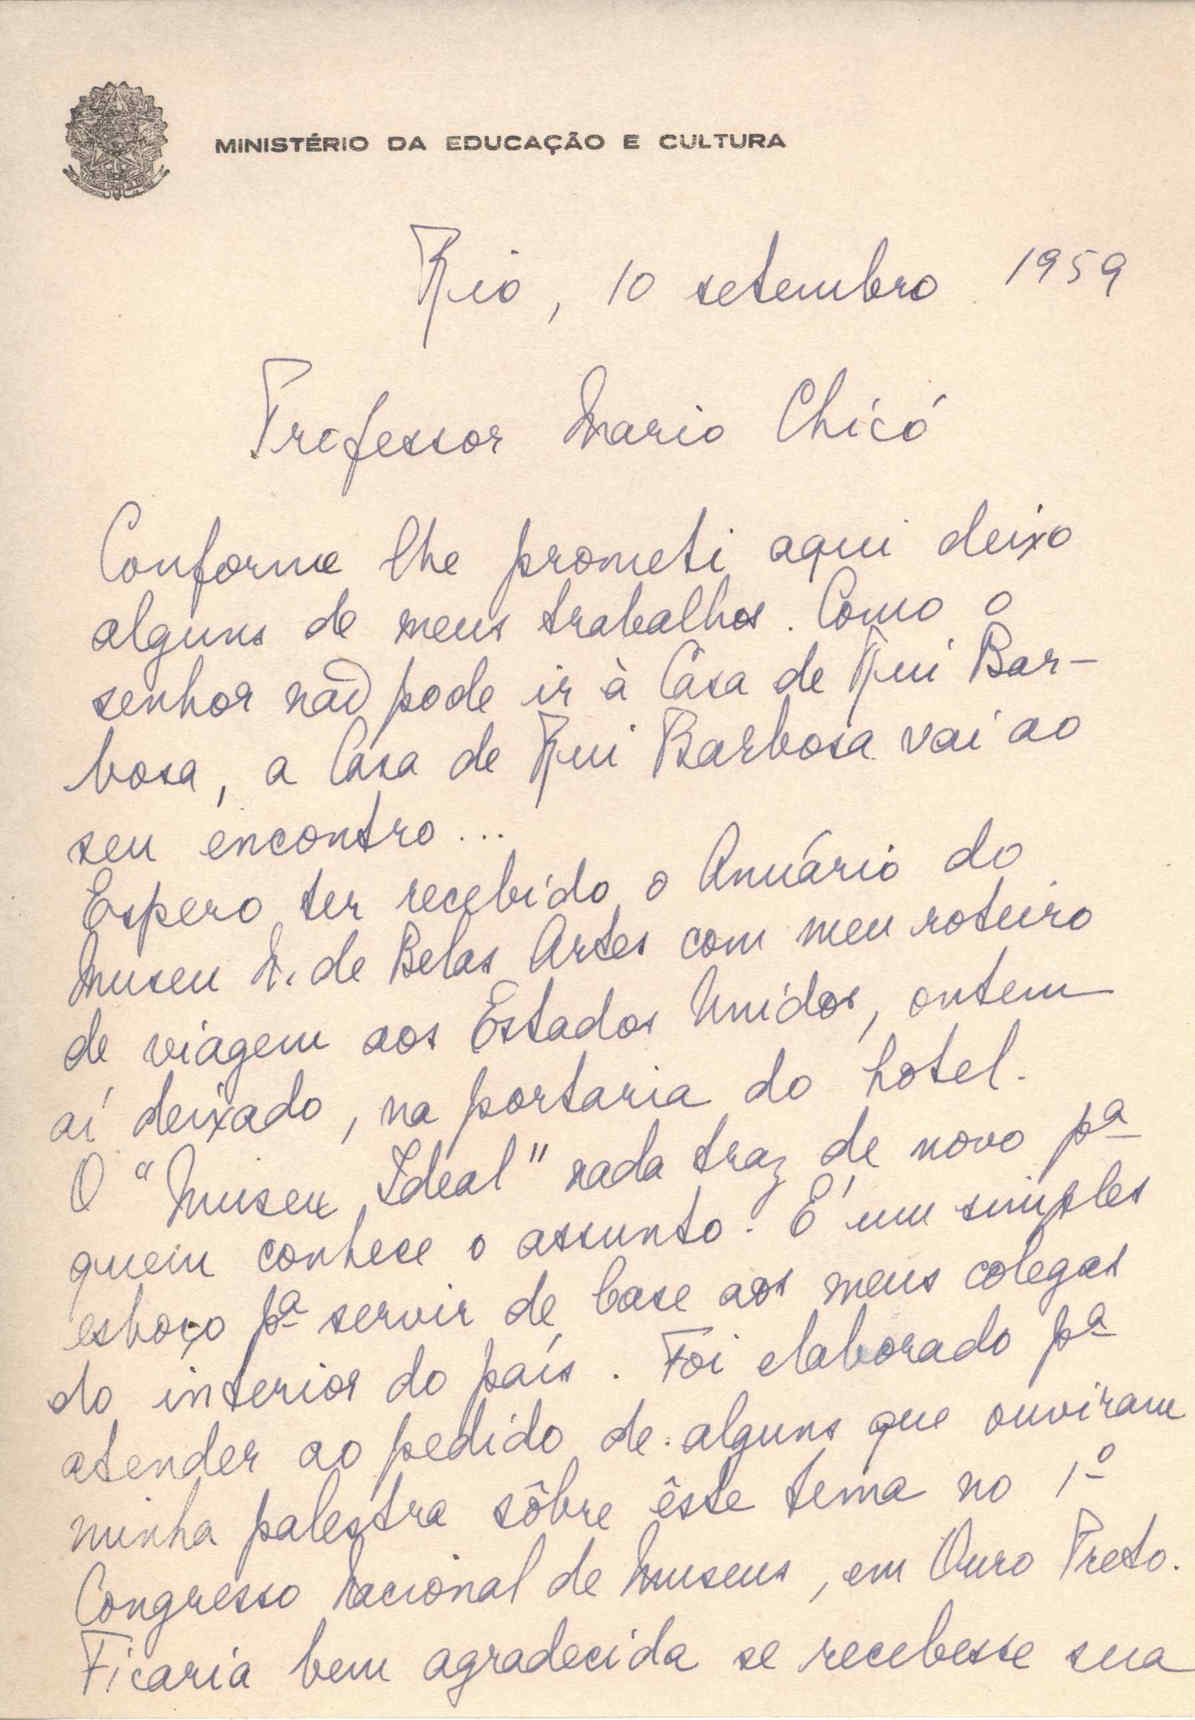 MINISTÉRIO DA EDUCAÇÃO E CULTURA
Rio, 10 setembro 1959
Professor Mario Chicó
Conforme lhe prometi aqui deixo
alguns de meus trabalhos. Como o
senhor não pode ir à Casa de Rui Bar-
bosa, a Casa de Rui Barbosa vai ao
seu encontro...
Espero ter recebido o Anuário do
Museu N. de Belas Artes com meu roteiro
de viagem aos Estados Unidos, ontem
aí deixado, na portaria do hotel.
O "Museu Ideal" nada traz de novo pª
quem conhece o assunto. É um simples
esboço pª servir de base aos meus colegas
do interior do país. Foi elaborado pª
atender ao pedido de alguns que ouviram
minha palestra sôbre êste tema no 1º
Congresso Nacional de Museus, em Ouro Preto.
Ficaria bem agradecida se recebesse sua